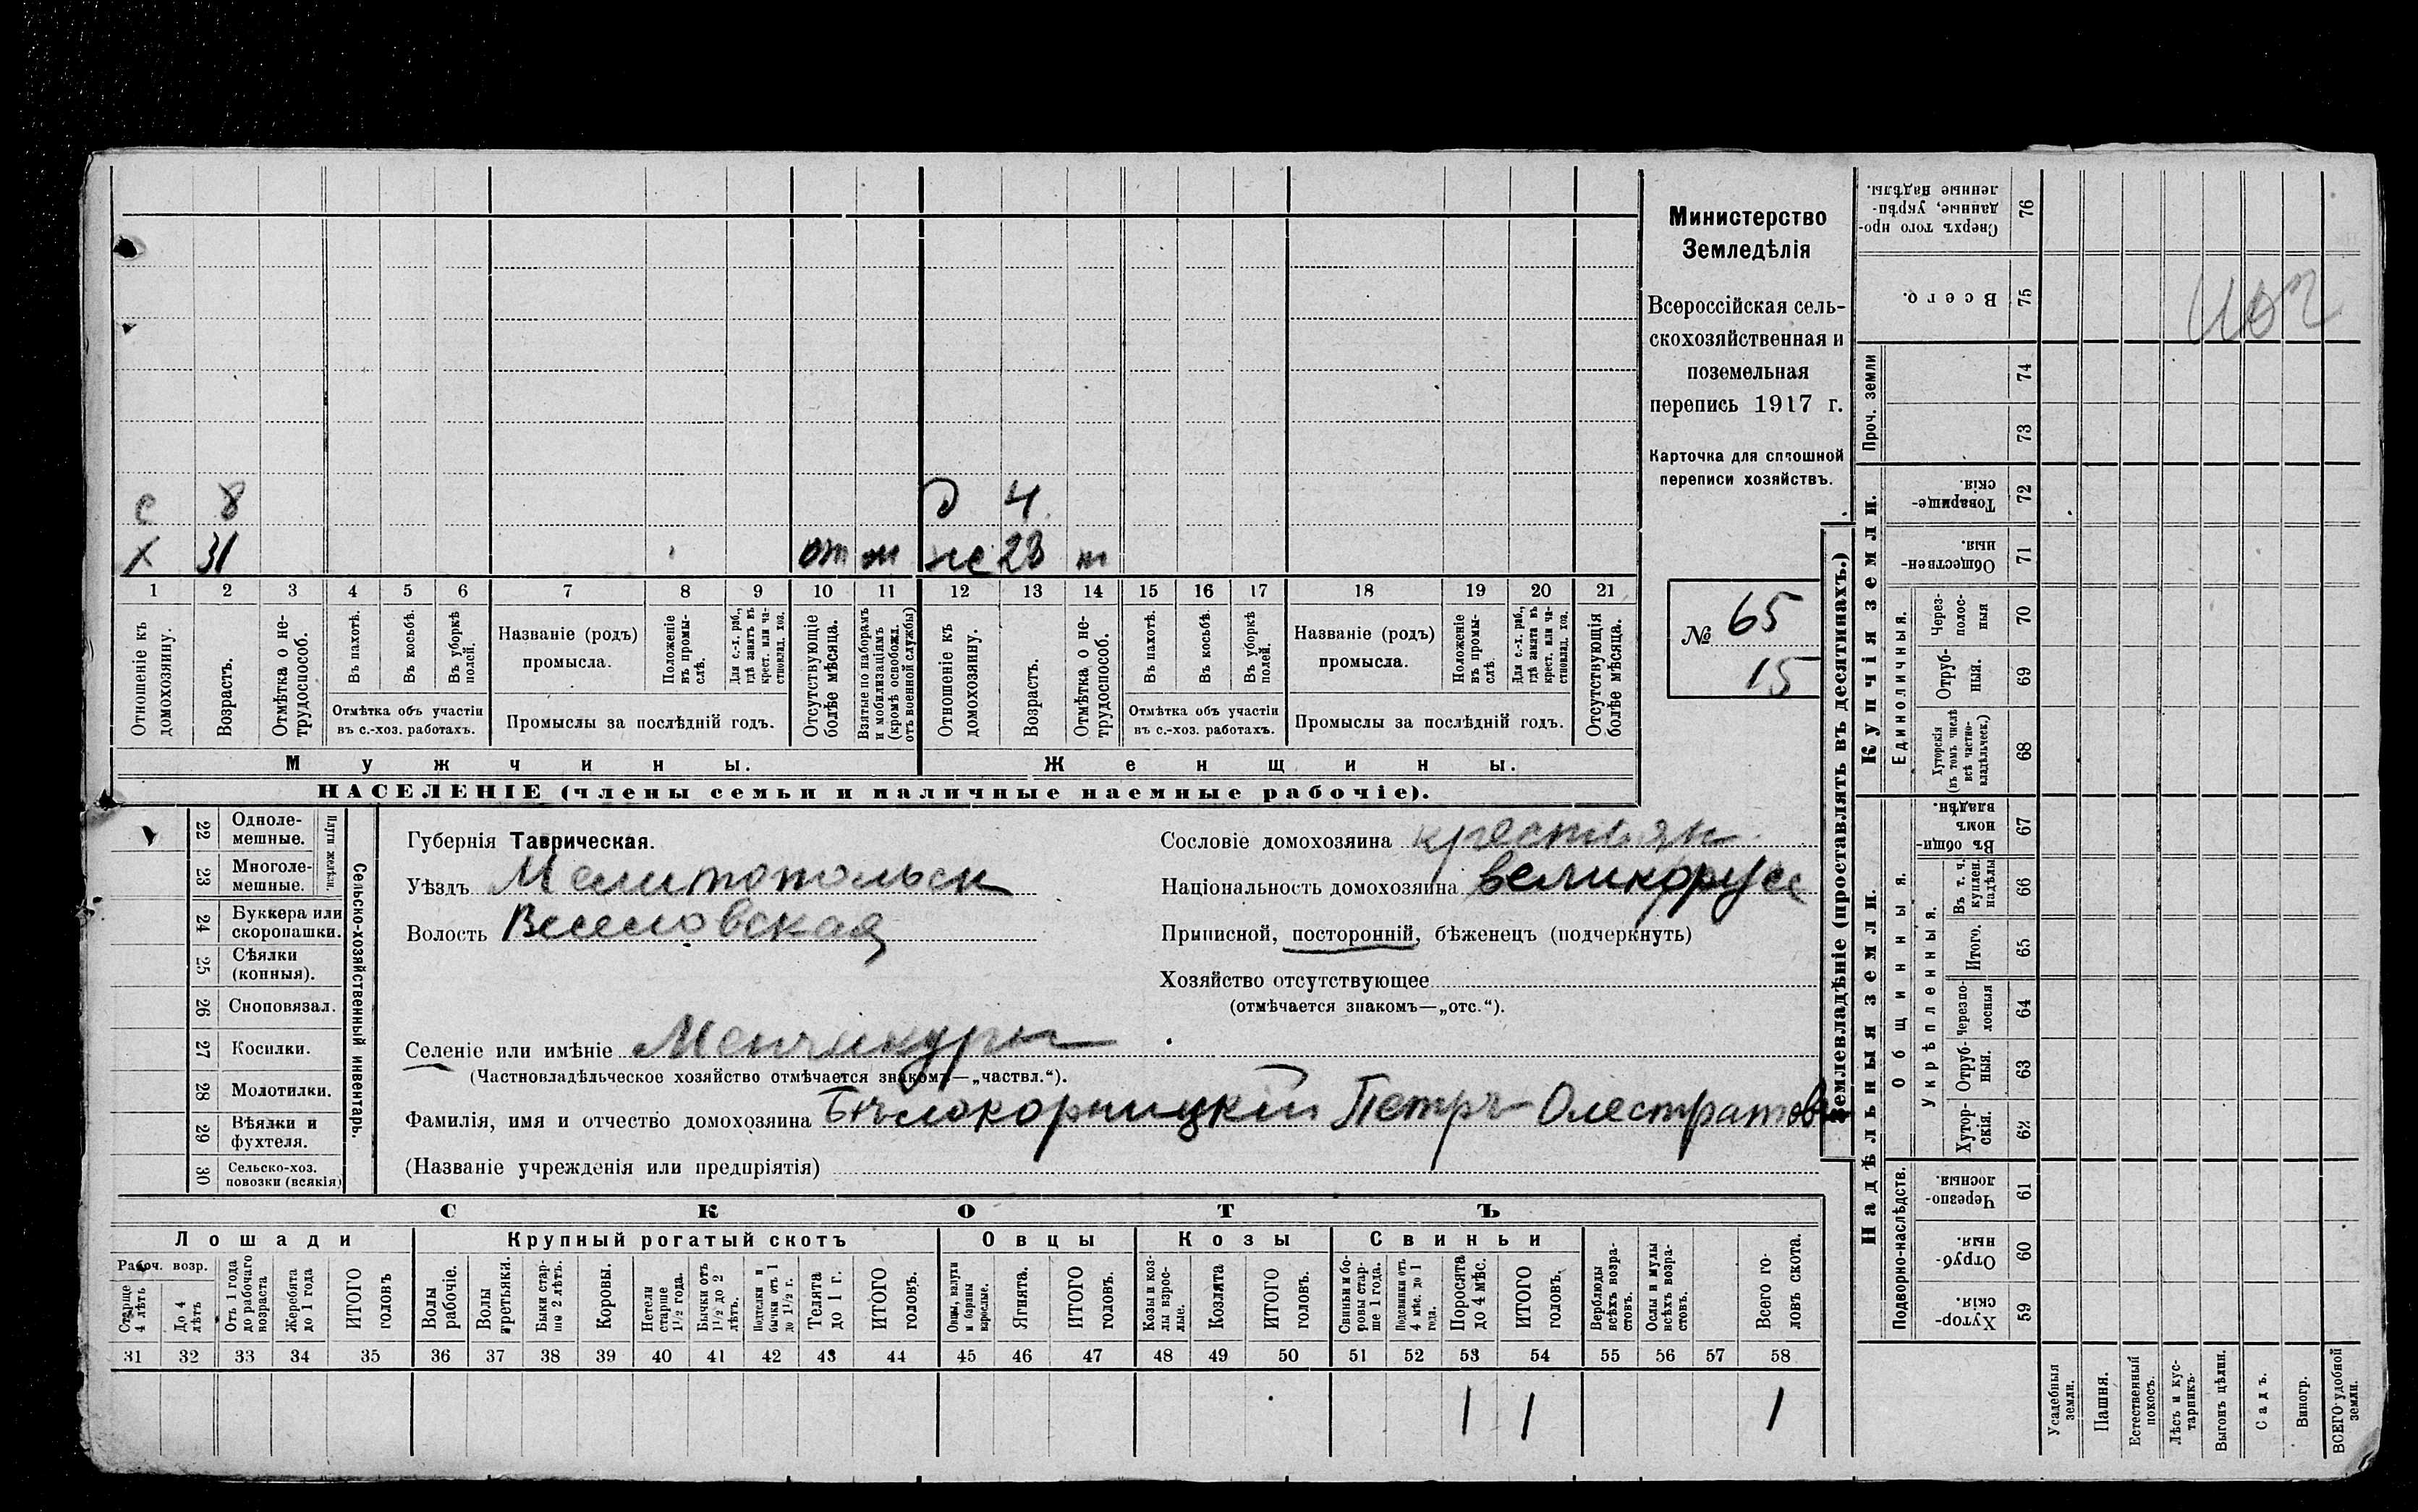 Министерство
Земледѣлія
Всероссійская сель-
скохозяйственная и
поземельная
перепись 1917 г.
Карточка для сплошной
переписи хозяйствъ.
№ 65
15
с 8 д 4
х 31 от м же 23 м
1 2 3 4 5 6 7 8 9 10 11 12 13 14 15 16 17 18 19 20 21
Отношеніе къ домохозяину.
Возрастъ.
Отмѣтка о не-трудоспособ.
Въ пахотѣ.
Въ косьбѣ.
Въ уборкѣ полей.
Отмѣтка объ участіи
въ с.-хоз. работахъ.
Названіе (родъ)
промысла.
Положеніе въ промы-слѣ.
Для с.-х. раб., гдѣ занятъ въ крест. или ча-стновлад. хоз.
Промыслы за послѣдній годъ.
Отсутствующіе болѣе мѣсяца.
Взятые по наборамъ и мобилизаціямъ (кромѣ освобожд. отъ военной службы)
Отношеніе къ домохозяину.
Возрастъ.
Отмѣтка о не-трудоспособ.
Въ пахотѣ.
Въ косьбѣ.
Въ уборкѣ полей.
Отмѣтка объ участіи
въ с.-хоз. работахъ.
Названіе (родъ)
промысла.
Положеніе въ промы-слѣ.
Для с.-х. раб., гдѣ занята въ крест. или ча-стновлад. хоз.
Промыслы за послѣдній годъ.
Отсутствующія болѣе мѣсяца.
Мужчины. Женщины.
НАСЕЛЕНІЕ (члены семьи и наличные наемные рабочіе).
22 Одноле-мешные.
23 Многоле-мешные.
Плуги желѣзн.
24 Буккера или скоропашки.
25 Сѣялки (конныя).
26 Сноповязал.
27 Косилки.
28 Молотилки.
29 Вѣялки и фухтеля.
30 Сельско-хоз. повозки (всякія)
Сельско-хозяйственный инвентарь.
Губернія Таврическая.
Уѣздъ Мелитопольск
Волость Веселовская
Сословіе домохозяина крестьян
Національность домохозяина великорусс
Приписной, посторонній, бѣженецъ (подчеркнуть)
Хозяйство отсутствующее
(отмѣчается знакомъ—„отс.“).
Селеніе или имѣніе Менчикуры
(Частновладѣльческое хозяйство отмѣчается знакомъ—„частвл.“).
Фамилія, имя и отчество домохозяина Бѣлокорницкій Петръ Олестратов
(Названіе учрежденія или предпріятія)
СКОТЪ
Лошади Крупный рогатый скотъ Овцы Козы Свиньи
Рабоч. возр.
Старше 4 лѣтъ
До 4 лѣтъ
Отъ 1 года до рабочаго возраста
Жеребята до 1 года
ИТОГО головъ
Волы рабочіе.
Волы третьяки.
Быки стар-ше 2 лѣтъ.
Коровы.
Нетели старше 1 1/2 года.
Бычки отъ 1 1/2 до 2 лѣтъ.
Подтелки и бычки отъ 1 до 1 1/2 г.
Телята до 1 г.
ИТОГО головъ.
Овцы, валухи и бараны взрослые.
Ягнята.
ИТОГО головъ.
Козы и коз-лы взрос-лые.
Козлята
ИТОГО головъ.
Свиньи и бо-ровы стар-ше 1 года.
Подсвинки отъ 4 мѣс. до 1 года.
Поросята до 4 мѣс.
ИТОГО головъ.
Верблюды всѣхъ возра-стовъ.
Ослы и мулы всѣхъ возра-стовъ.
Всего го-ловъ скота.
31 32 33 34 35 36 37 38 39 40 41 42 43 44 45 46 47 48 49 50 51 52 53 54 55 56 57 58
1 1 1
Землевладѣніе (проставлять въ десятинахъ.)
Купчія земли.
Надѣльныя земли.
Проч. земли
Единоличныя.
Общинныя.
Укрѣпленныя.
Подворно-наслѣдств.
Сверхъ того про-данные, укрѣп-ленные надѣлы. 76
Всего. 75
74
73
Товарище-скія. 72
Обществен-ныя. 71
Через-полос-ныя 70
Отруб-ныя. 69
Хуторскія (въ томъ числѣ всѣ частно-владѣльческ.) 68
Въ общи-номъ владѣн. 67
Въ т. ч. куплен. надѣлы 66
Итого. 65
Черезпо-лосныя 64
Отруб-ныя. 63
Хутор-скія. 62
Черезпо-лосныя. 61
Отруб-ныя. 60
Хутор-скія. 59
Усадебныя земли.
Пашня.
Естественный покосъ.
Лѣсъ и кус-тарникъ.
Выгонъ цѣлин.
Садъ.
Виногр.
ВСЕГО удобной земли.